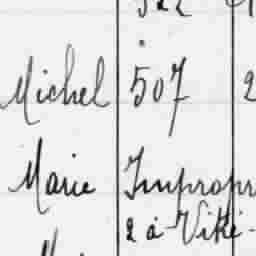 Michel 507 2
Marie Impropr
2 à Viki-